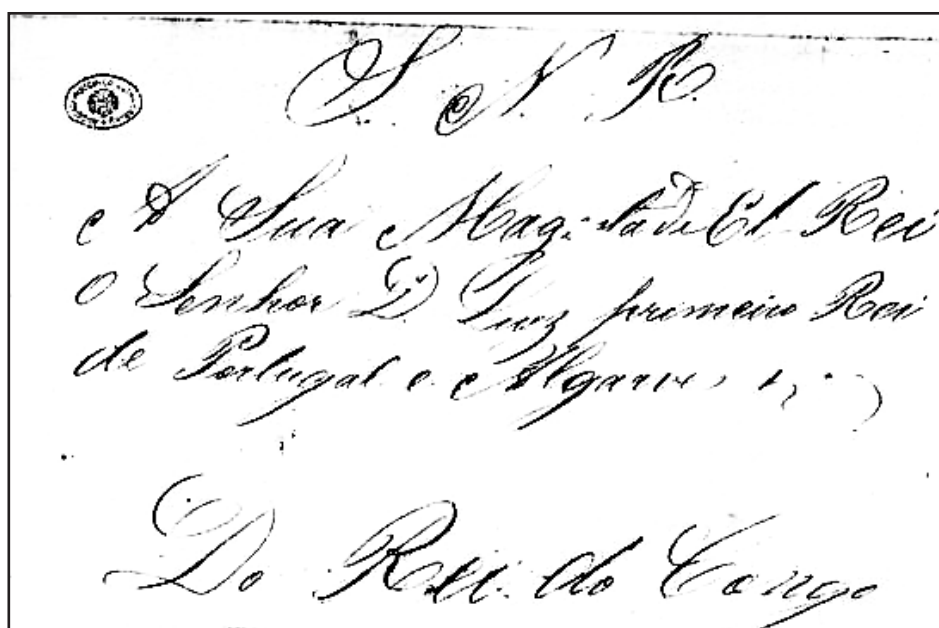 S. N. R.
A Sua Magestade El Rei
O Senhor D. Luiz primeiro Rei
de Portugal e Algarves
Do Rei do Congo